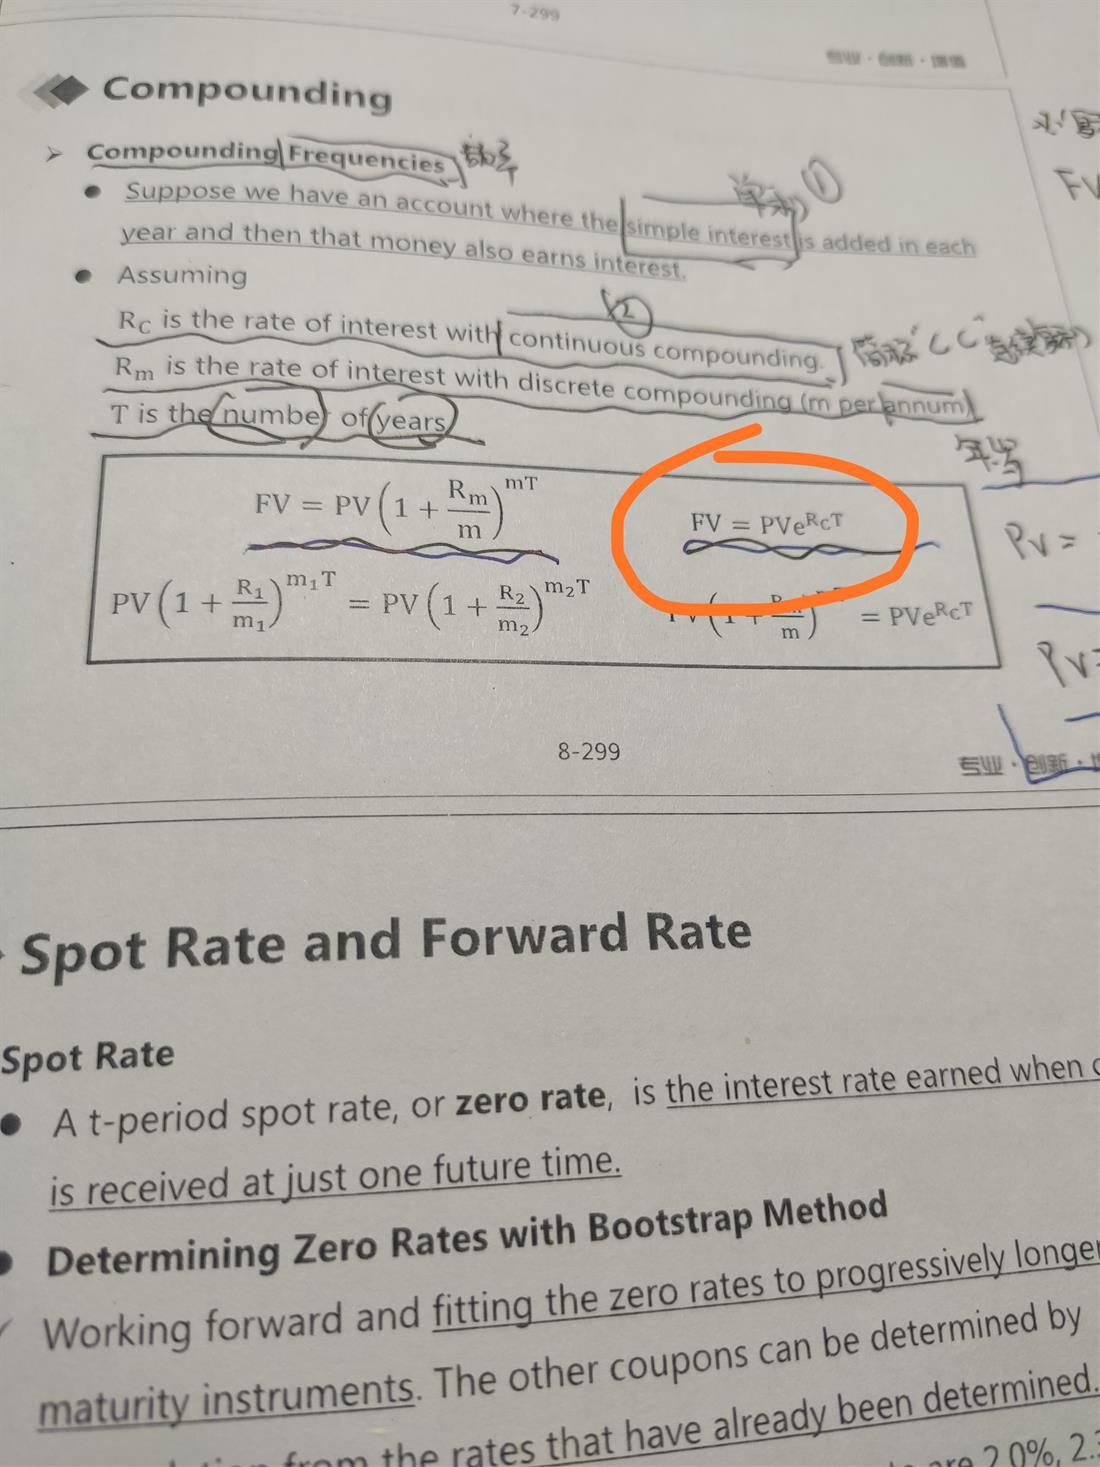 7-299
专业 · 创新 · 增值
Compounding
Compounding Frequencies 频率
Suppose we have an account where the simple interest is added in each
year and then that money also earns interest.
单利 ①
Assuming
②
R_C is the rate of interest with continuous compounding. 简称"CC"
R_m is the rate of interest with discrete compounding (m per annum)
T is the number of years
FV = PV(1 + R_m/m)^{mT} FV = PVe^{R_C T}
PV(1 + R_1/m_1)^{m_1 T} = PV(1 + R_2/m_2)^{m_2 T} PV(1 + R_m/m) = PVe^{R_C T}
FV
PV =
PV =
8-299
专业 · 创新 ·
Spot Rate and Forward Rate
Spot Rate
A t-period spot rate, or zero rate, is the interest rate earned when
is received at just one future time.
Determining Zero Rates with Bootstrap Method
Working forward and fitting the zero rates to progressively longer
maturity instruments. The other coupons can be determined by
from the rates that have already been determined.
are 2.0%, 2.